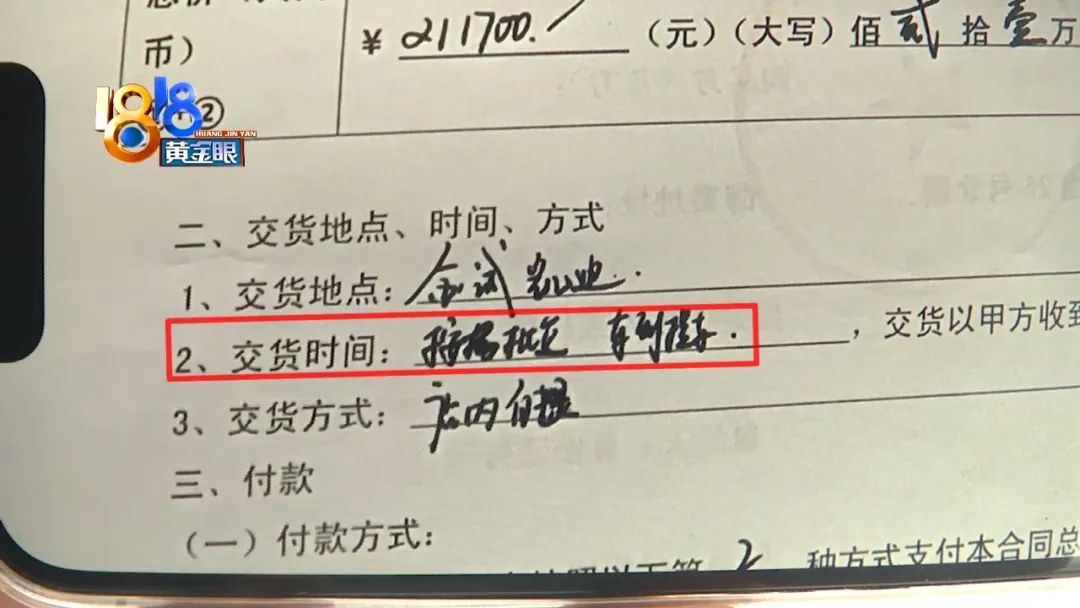 币）
¥ 211700. （元）（大写）佰贰拾壹万
②
1818
HUANG JIN YAN
黄金眼
二、交货地点、时间、方式
1、交货地点：
2、交货时间： 车到提车. ，交货以甲方收到
3、交货方式：店内自提
三、付款
（一）付款方式：
2 种方式支付本合同总